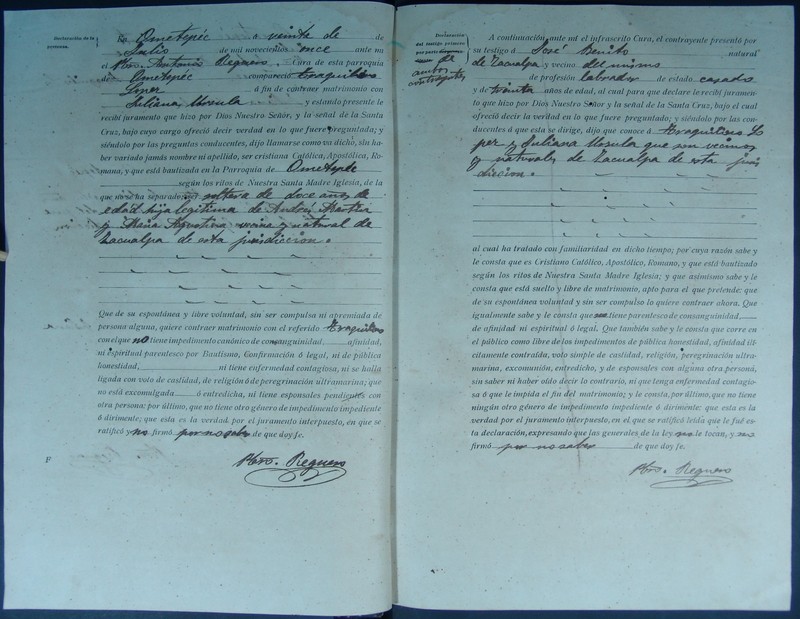 Declaración de la
En Ometepéc a veinte de de
Julio de mil novecientos once ante mí
el Pbro. Antonio Reguero, Cura de esta parroquia
de Ometepéc compareció
á fin de contraer matrimonio con
Juliana Ursula y estando presente le
recibí juramento que hizo por Dios Nuestro Señor, y la señal de la Santa
Cruz, bajo cuyo cargo ofreció decir verdad en lo que fuere preguntada; y
siéndolo por las preguntas conducentes, dijo llamarse como va dicho, sin ha-
ber variado jamás nombre ni apellido, ser cristiana Católica, Apostólica, Ro-
mana, y que está bautizada en la Parroquia de Ometepéc
según los ritos de Nuestra Santa Madre Iglesia, de la
que no se ha separado, ser soltera de doce años de
edad hija legítima de Andrés Martin
y Maria Agustina vecina y natural de
Zacualpa de esta jurisdiccion.
Que de su espontánea y libre voluntad, sin ser compulsa ni apremiada de
persona alguna, quiere contraer matrimonio con el referido
con el que no tiene impedimento canónico de consanguinidad, afinidad,
ni espiritual parentesco por Bautismo, Confirmación ó legal, ni de pública
honestidad, ni tiene enfermedad contagiosa, ni se halla
ligada con voto de castidad, de religión ó de peregrinación ultramarina; que
no está excomulgada ó entredicha, ni tiene esponsales pendientes con
otra persona: por último, que no tiene otro género de impedimento impediente
ó dirimente; que esta es la verdad por el juramento interpuesto, en que se
ratificó y no firmó por no saber de que doy fe.
Pbro. Reguero
Declaración
del testigo primero
por parte
de
ambos
contrayentes
A continuación, ante mí el infrascrito Cura, el contrayente presentó por
su testigo á José Benito natural
de Zacualpa y vecino del mismo
de profesión labrador de estado casado
y de treinta años de edad, al cual para que declare le recibí juramen-
to que hizo por Dios Nuestro Señor y la señal de la Santa Cruz, bajo el cual
ofreció decir la verdad en lo que fuere preguntado; y siéndolo por las con-
ducentes á que esta se dirige, dijo que conoce á
y Juliana Ursula que son vecinos
y naturales de Zacualpa de esta juris
diccion.
al cual ha tratado con familiaridad en dicho tiempo; por cuya razón sabe y
le consta que es Cristiano Católico, Apostólico, Romano, y que está bautizado
según los ritos de Nuestra Santa Madre Iglesia; y que asimismo sabe y le
consta que está suelto y libre de matrimonio, apto para el que pretende: que
de su espontánea voluntad y sin ser compulso lo quiere contraer ahora. Que
igualmente sabe y le consta que tiene parentesco de consanguinidad,
de afinidad ni espiritual ó legal. Que también sabe y le consta que corre en
el público como libre de los impedimentos de pública honestidad, afinidad ilí-
citamente contraída, voto simple de castidad, religión, peregrinación ultra-
marina, excomunión, entredicho, y de esponsales con alguna otra persona,
sin saber ni haber oído decir lo contrario, ni que tenga enfermedad contagio-
sa ó que le impida el fin del matrimonio; y le consta, por último, que no tiene
ningún otro género de impedimento impediente ó dirimente: que esta es la
verdad por el juramento interpuesto, en el que se ratificó leída que le fué es-
ta declaración, expresando que las generales de la ley no le tocan, y no
firmó por no saber de que doy fe.
Pbro. Reguero